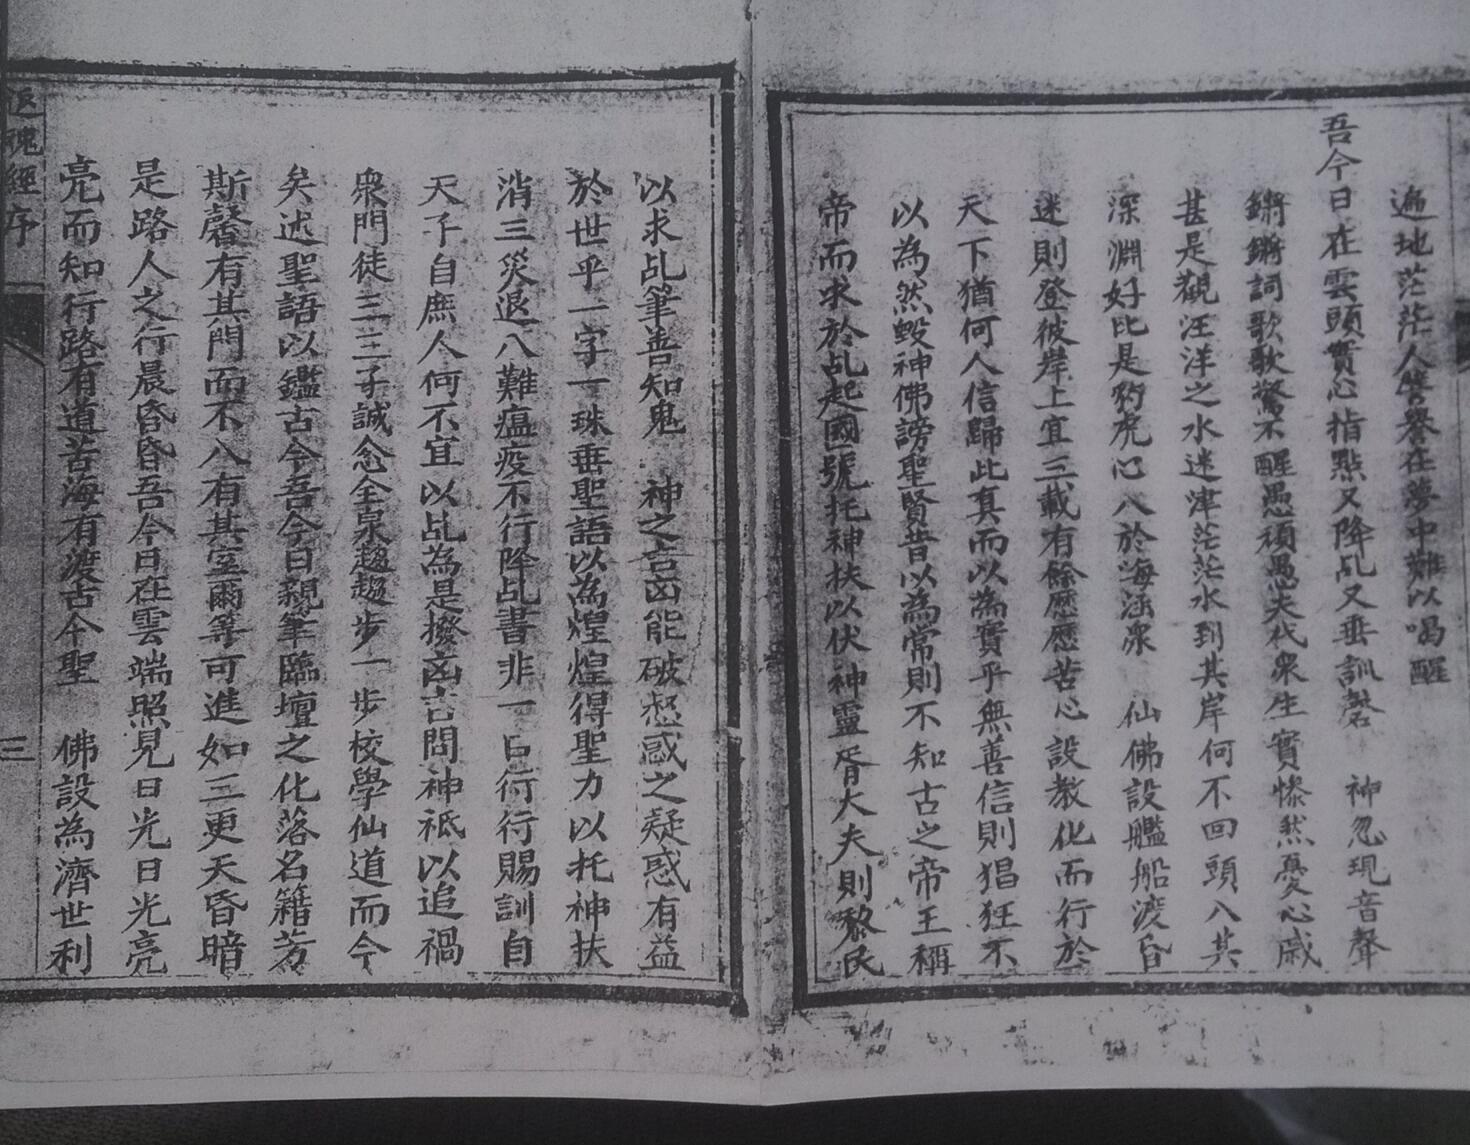 遍地茫茫人譽譽在夢中難以喝醒
吾今日在雲頭實心指點又降乩又垂訓磬　神忽現音聲
鏘鏘詞歌歌驚不醒愚頑愚夫代眾生實慘然憂心戚
甚是觀汪洋之水迷津茫茫水到其岸何不回頭八其
深淵好比是豹虎心八於海涵眾　仙佛設艦船渡昏
迷則登彼岸上宜三載有餘歷歷苦心設教化而行於
天下猶何人信歸此真而以為實乎無善信則猖狂不
以為然毀神佛謗聖賢昔以為常則不知古之帝王稱
帝而求於乩起國號托神扶以伏神靈胥大夫則黎民
以求乩筆善知鬼　神之言凶能破惑之疑惑有益
於世乎一字一珠垂聖語以為煌煌得聖力以托神扶
消三災退八難瘟疫不行降乩書非一日行行賜訓自
天子自庶人何不宜以乩為是撥凶言問神祗以追禍
眾門徒三三子誠念全泉趨趨步一步校學仙道而今
矣述聖語以鑑古今吾今日親筆臨壇之化落名籍芳
斯馨有其門而不八有其室爾等可進如三更天昏暗
是路人之行晨昏昏吾今日在雲端照見日光日光亮
亮而知行路有道苦海有渡古今聖　佛設為濟世利
返魂經序
三